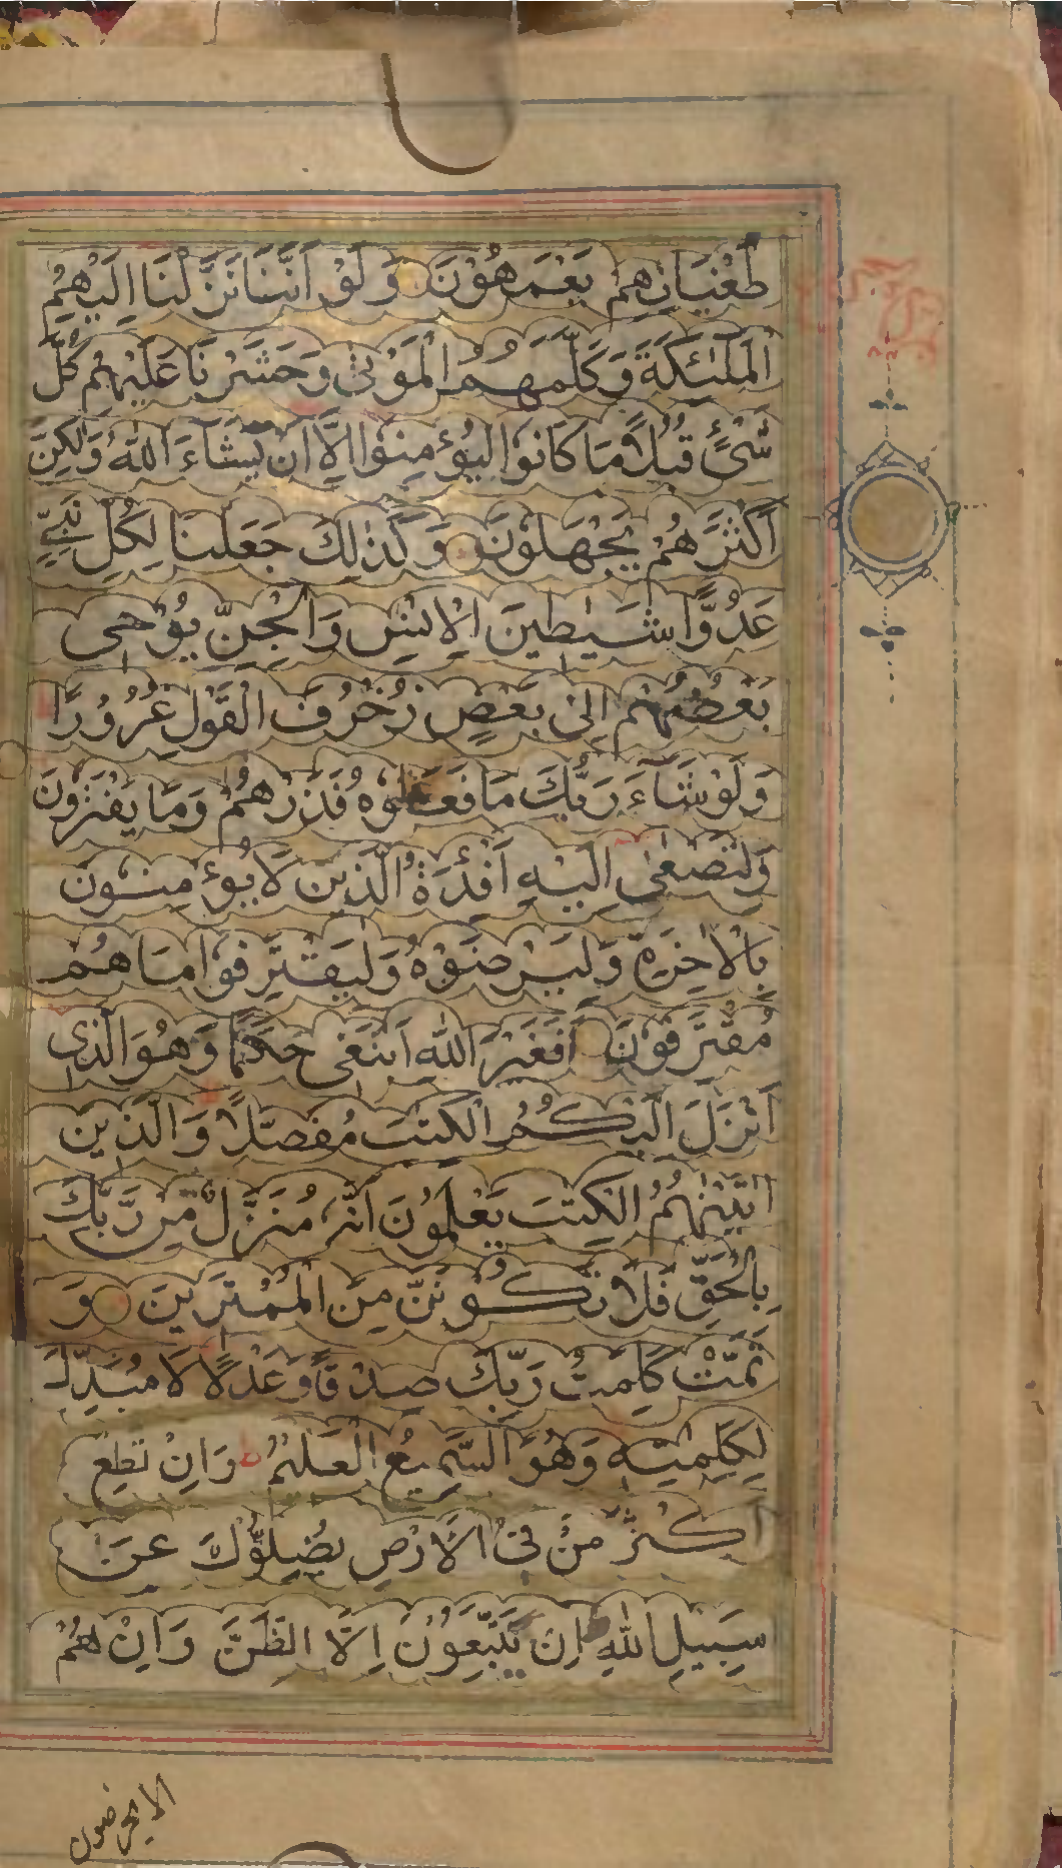 طُغْيَانِهِمْ يَعْمَهُوْنَ وَلَوْ اَنَّنَا نَزَّلْنَا اِلَيْهِمُ
الْمَلٰئِكَةَ وَكَلَّمَهُمُ الْمَوْتٰى وَحَشَرْنَا عَلَيْهِمْ كُلَّ
شَىْءٍ قُبُلًا مَا كَانُوا لِيُؤْمِنُوا اِلَّا اَنْ يَشَآءَ اللّٰهُ وَلٰكِنَّ
اَكْثَرَهُمْ يَجْهَلُوْنَ وَكَذٰلِكَ جَعَلْنَا لِكُلِّ نَبِيٍّ
عَدُوًّا شَيٰطِيْنَ الْاِنْسِ وَالْجِنِّ يُوْحِى
بَعْضُهُمْ اِلٰى بَعْضٍ زُخْرُفَ الْقَوْلِ غُرُوْرًا
وَلَوْ شَآءَ رَبُّكَ مَا فَعَلُوْهُ فَذَرْهُمْ وَمَا يَفْتَرُوْنَ
وَلِتَصْغٰى اِلَيْهِ اَفْئِدَةُ الَّذِيْنَ لَا يُؤْمِنُوْنَ
بِالْاٰخِرَةِ وَلِيَرْضَوْهُ وَلِيَقْتَرِفُوْا مَا هُمْ
مُقْتَرِفُوْنَ اَفَغَيْرَ اللّٰهِ اَبْتَغِى حَكَمًا وَهُوَ الَّذِى
اَنْزَلَ اِلَيْكُمُ الْكِتٰبَ مُفَصَّلًا وَالَّذِيْنَ
اٰتَيْنٰهُمُ الْكِتٰبَ يَعْلَمُوْنَ اَنَّهٗ مُنَزَّلٌ مِنْ رَبِّكَ
بِالْحَقِّ فَلَا تَكُوْنَنَّ مِنَ الْمُمْتَرِيْنَ وَ
تَمَّتْ كَلِمَتُ رَبِّكَ صِدْقًا وَعَدْلًا لَا مُبَدِّلَ
لِكَلِمٰتِهِ وَهُوَ السَّمِيْعُ الْعَلِيْمُ وَاِنْ تُطِعْ
اَكْثَرَ مَنْ فِى الْاَرْضِ يُضِلُّوْكَ عَنْ
سَبِيْلِ اللّٰهِ اِنْ يَتَّبِعُوْنَ اِلَّا الظَّنَّ وَاِنْ هُمْ
الا يخرصون